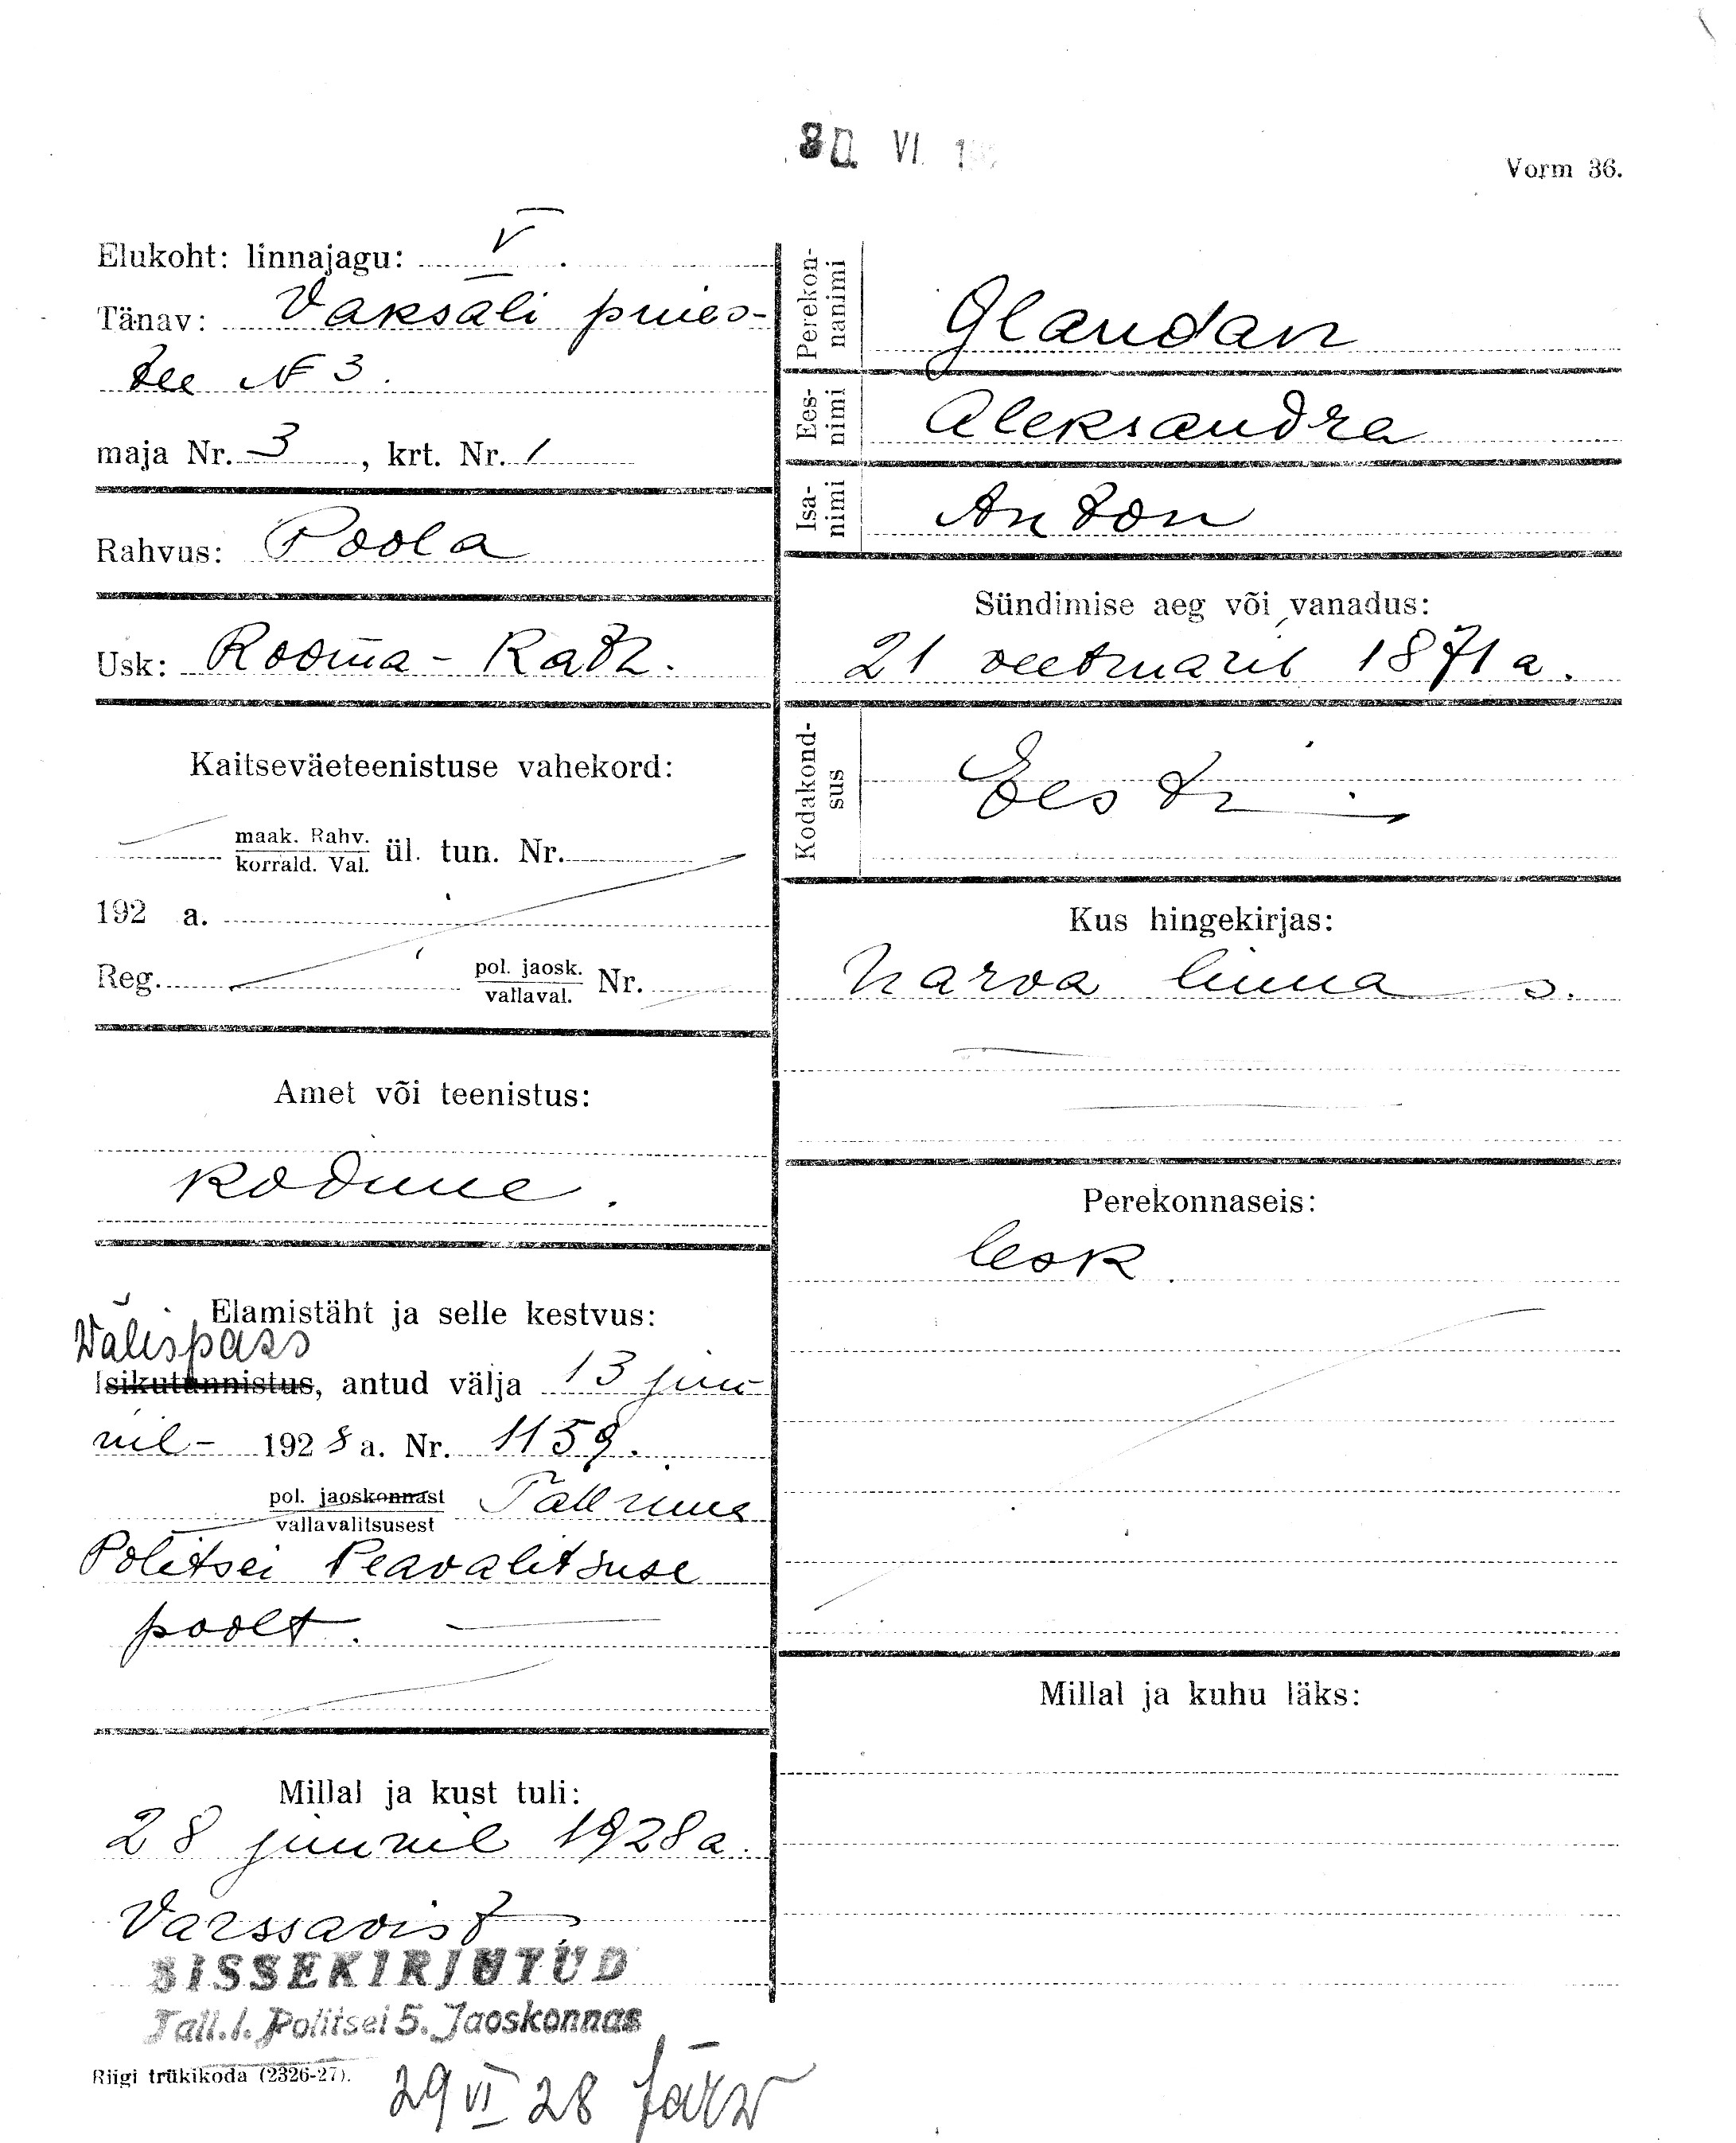 30. VI. 19
Vorm 36.
Elukoht: linnajagu: V.
Tänav: Vaksali puies-
tee № 3.
maja Nr. 3, krt. Nr. 1
Rahvus: Poola
Usk: Rooma-Kath.
Kaitseväeteenistuse vahekord:
maak. Rahv.
korrald. Val. ül. tun. Nr.
192 a.
Reg. pol. jaosk.
vallaval. Nr.
Amet või teenistus:
kodune.
Elamistäht ja selle kestvus:
Välispass
Isikutunnistus, antud välja 13 juu-
nil - 1928 a. Nr. 1159.
pol. jaoskonnast
vallavalitsusest Tallinna
Politsei Peavalitsuse
poolt.
Millal ja kust tuli:
28 juunil 1928 a.
Varssavist
SISSEKIRJUTUD
Tall. l. Politsei 5. Jaoskonnas
Riigi trükikoda (2326-27).
29 VI 28 Järw
Perekon-
nanimi
Glaudan
Ees-
nimi
Aleksandra
Isa-
nimi
Anton
Sündimise aeg või vanadus:
21 veebruaril 1871 a.
Kodakond-
sus
Eesti
Kus hingekirjas:
Narva linna s.
Perekonnaseis:
lesk
Millal ja kuhu läks: